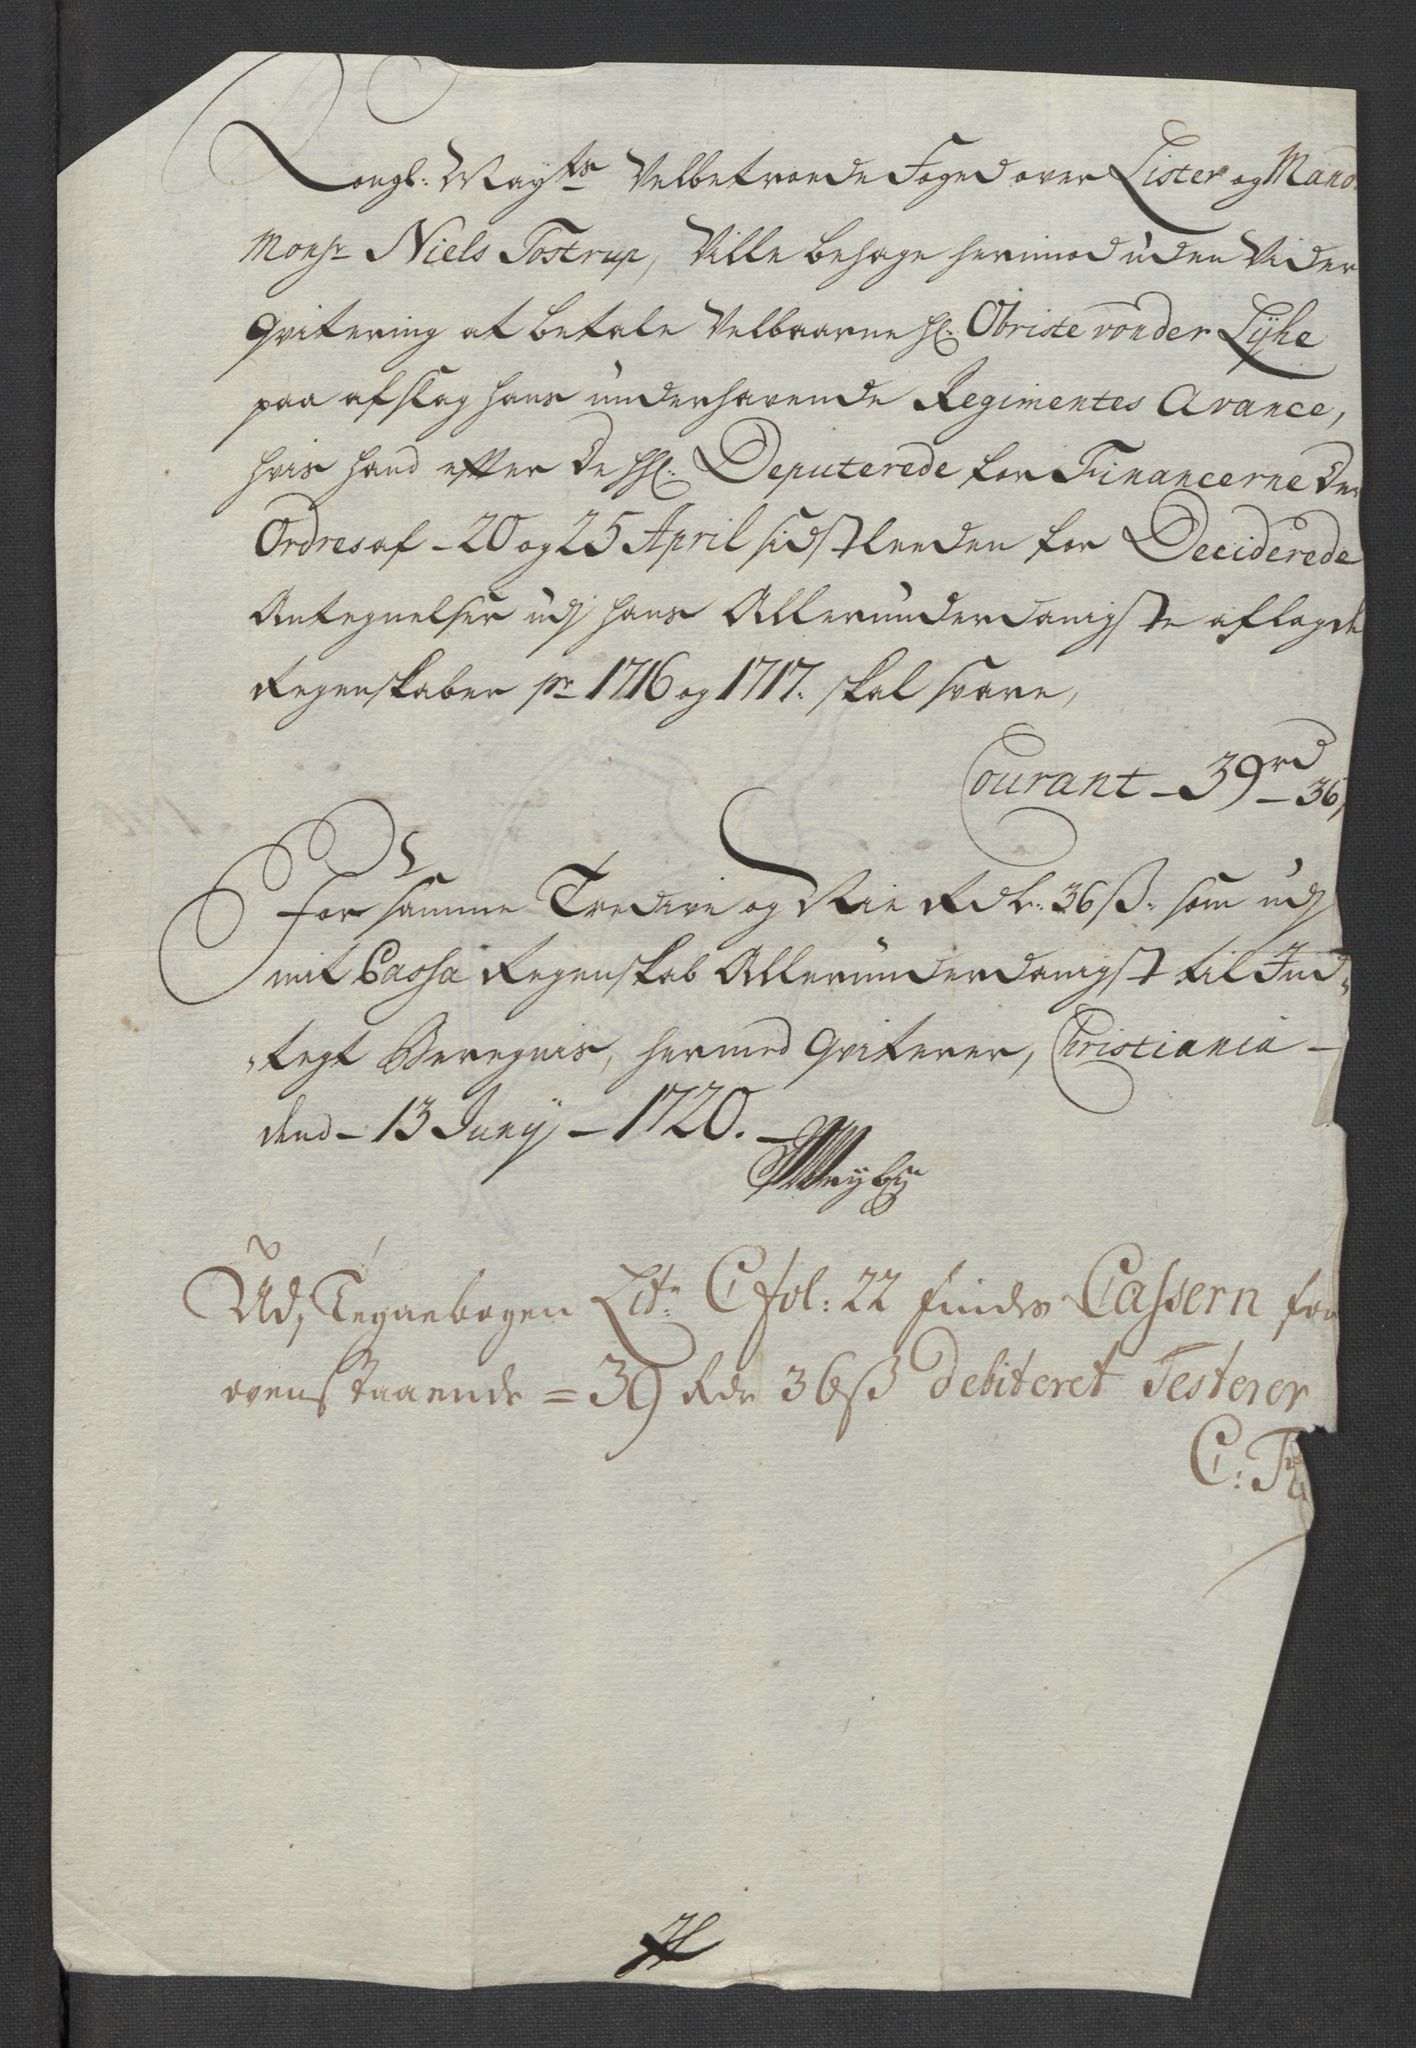 Kongl: Mayts Velbetroede Foged over Lister og Mand
Monsr Niels Tostrup, Ville behage herimod uden Vider
Qvitering at betale Velbaarne hl: Obriste von der Lÿhe
paa afslag hans underhavende Regimentes Avance,
hvis hand efter de hl: Deputerede for Financerne Der
Ordres af - 20 og 25 April sidstleeden for Deciderede
Antegnelser udj hans Allerunderdanigste aflagde
Regenskaber pr 1716 og 1717. skal svare,
Courant - 39rd - 36
For samme Tredive og Nie Rdlr: 36 ß: som udj
mit Cassa Regenskab Allerunderdanigst til Ind
tegt Beregnis, hermed Qviterer, Christiania -
dend - 13 Junÿ - 1720. -
Udj Tegnebogen Litr C fol: 22 findes Cassern for
ovenstaaende = 39 Rdr 36 ß debiteret Testerer
C: